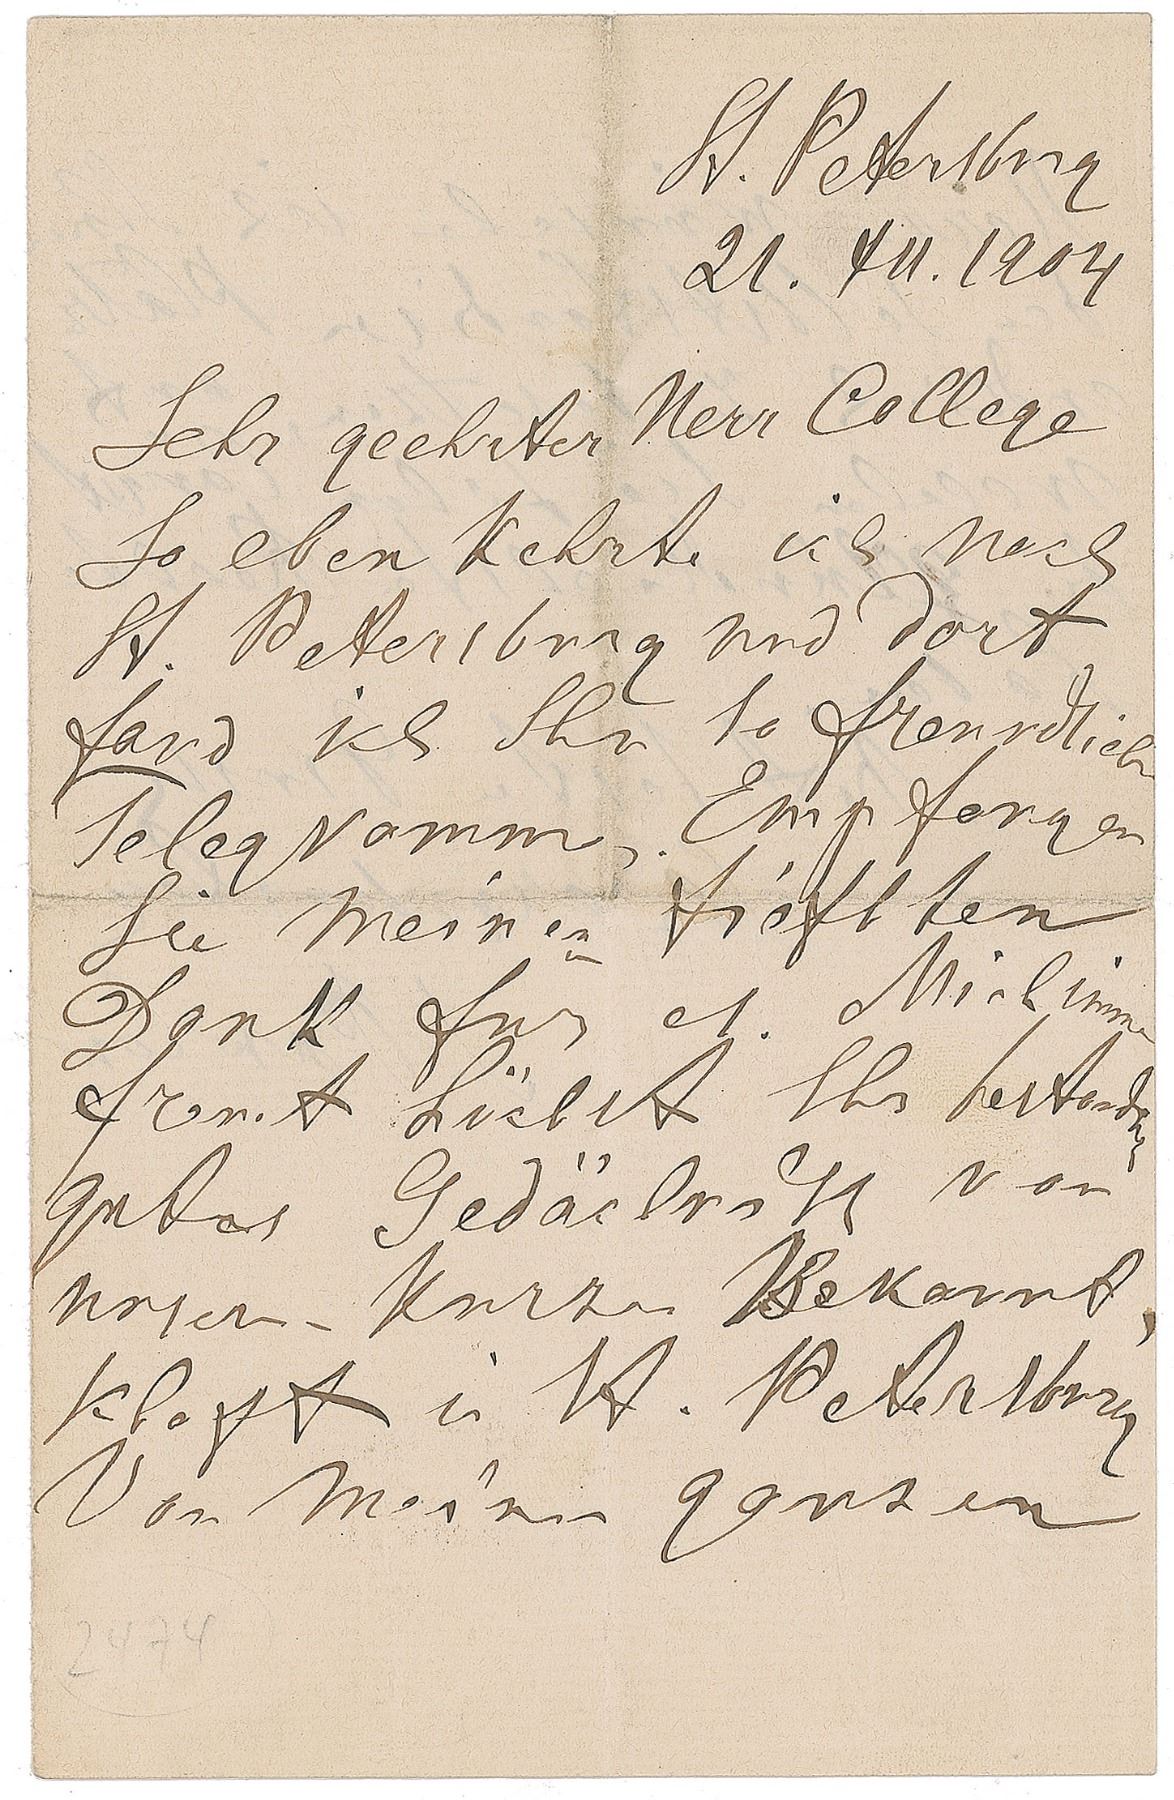 St. Petersburg
21. XII. 1904
Sehr geehrter Herr College
So eben kehrte ich nach
St. Petersburg und dort
fand ich Ihr so freundlich
Telegramm. Empfangen
Sie meinen tiefsten
Dank für es. Mich
freut höchst Ihr
gutes Gedächniss von
unser kurzen Bekannt,
schaft in St. Petersburg
Von meinen ganzen
2474